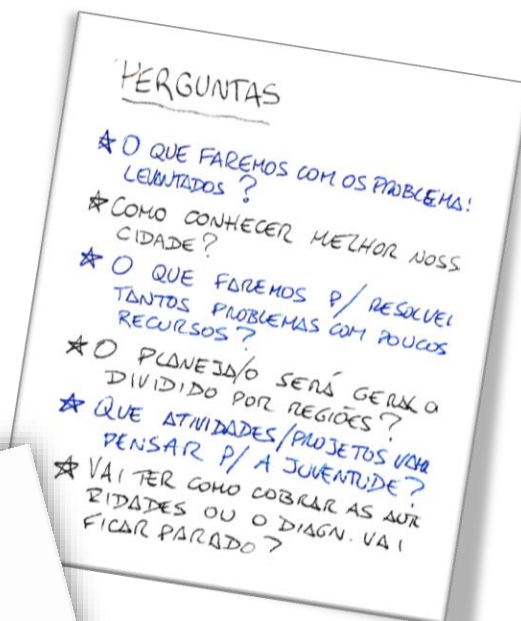 PERGUNTAS
☆ O QUE FAREMOS COM OS PROBLEMA
LEVANTADOS?
☆ COMO CONHECER MELHOR NOSS
CIDADE?
☆ O QUE FAREMOS P/ RESOLVE
TANTOS PROBLEMAS COM POUCOS
RECURSOS?
☆ O PLANEJA/O SERÁ GERAL O
DIVIDIDO POR REGIÕES?
☆ QUE ATIVIDADES/PROJETOS
PENSAR P/ A JUVENTUDE?
☆ VAI TER COMO COBRAR AS AUTO
RIDADES OU O DIAGN. VAI
FICAR PARADO?